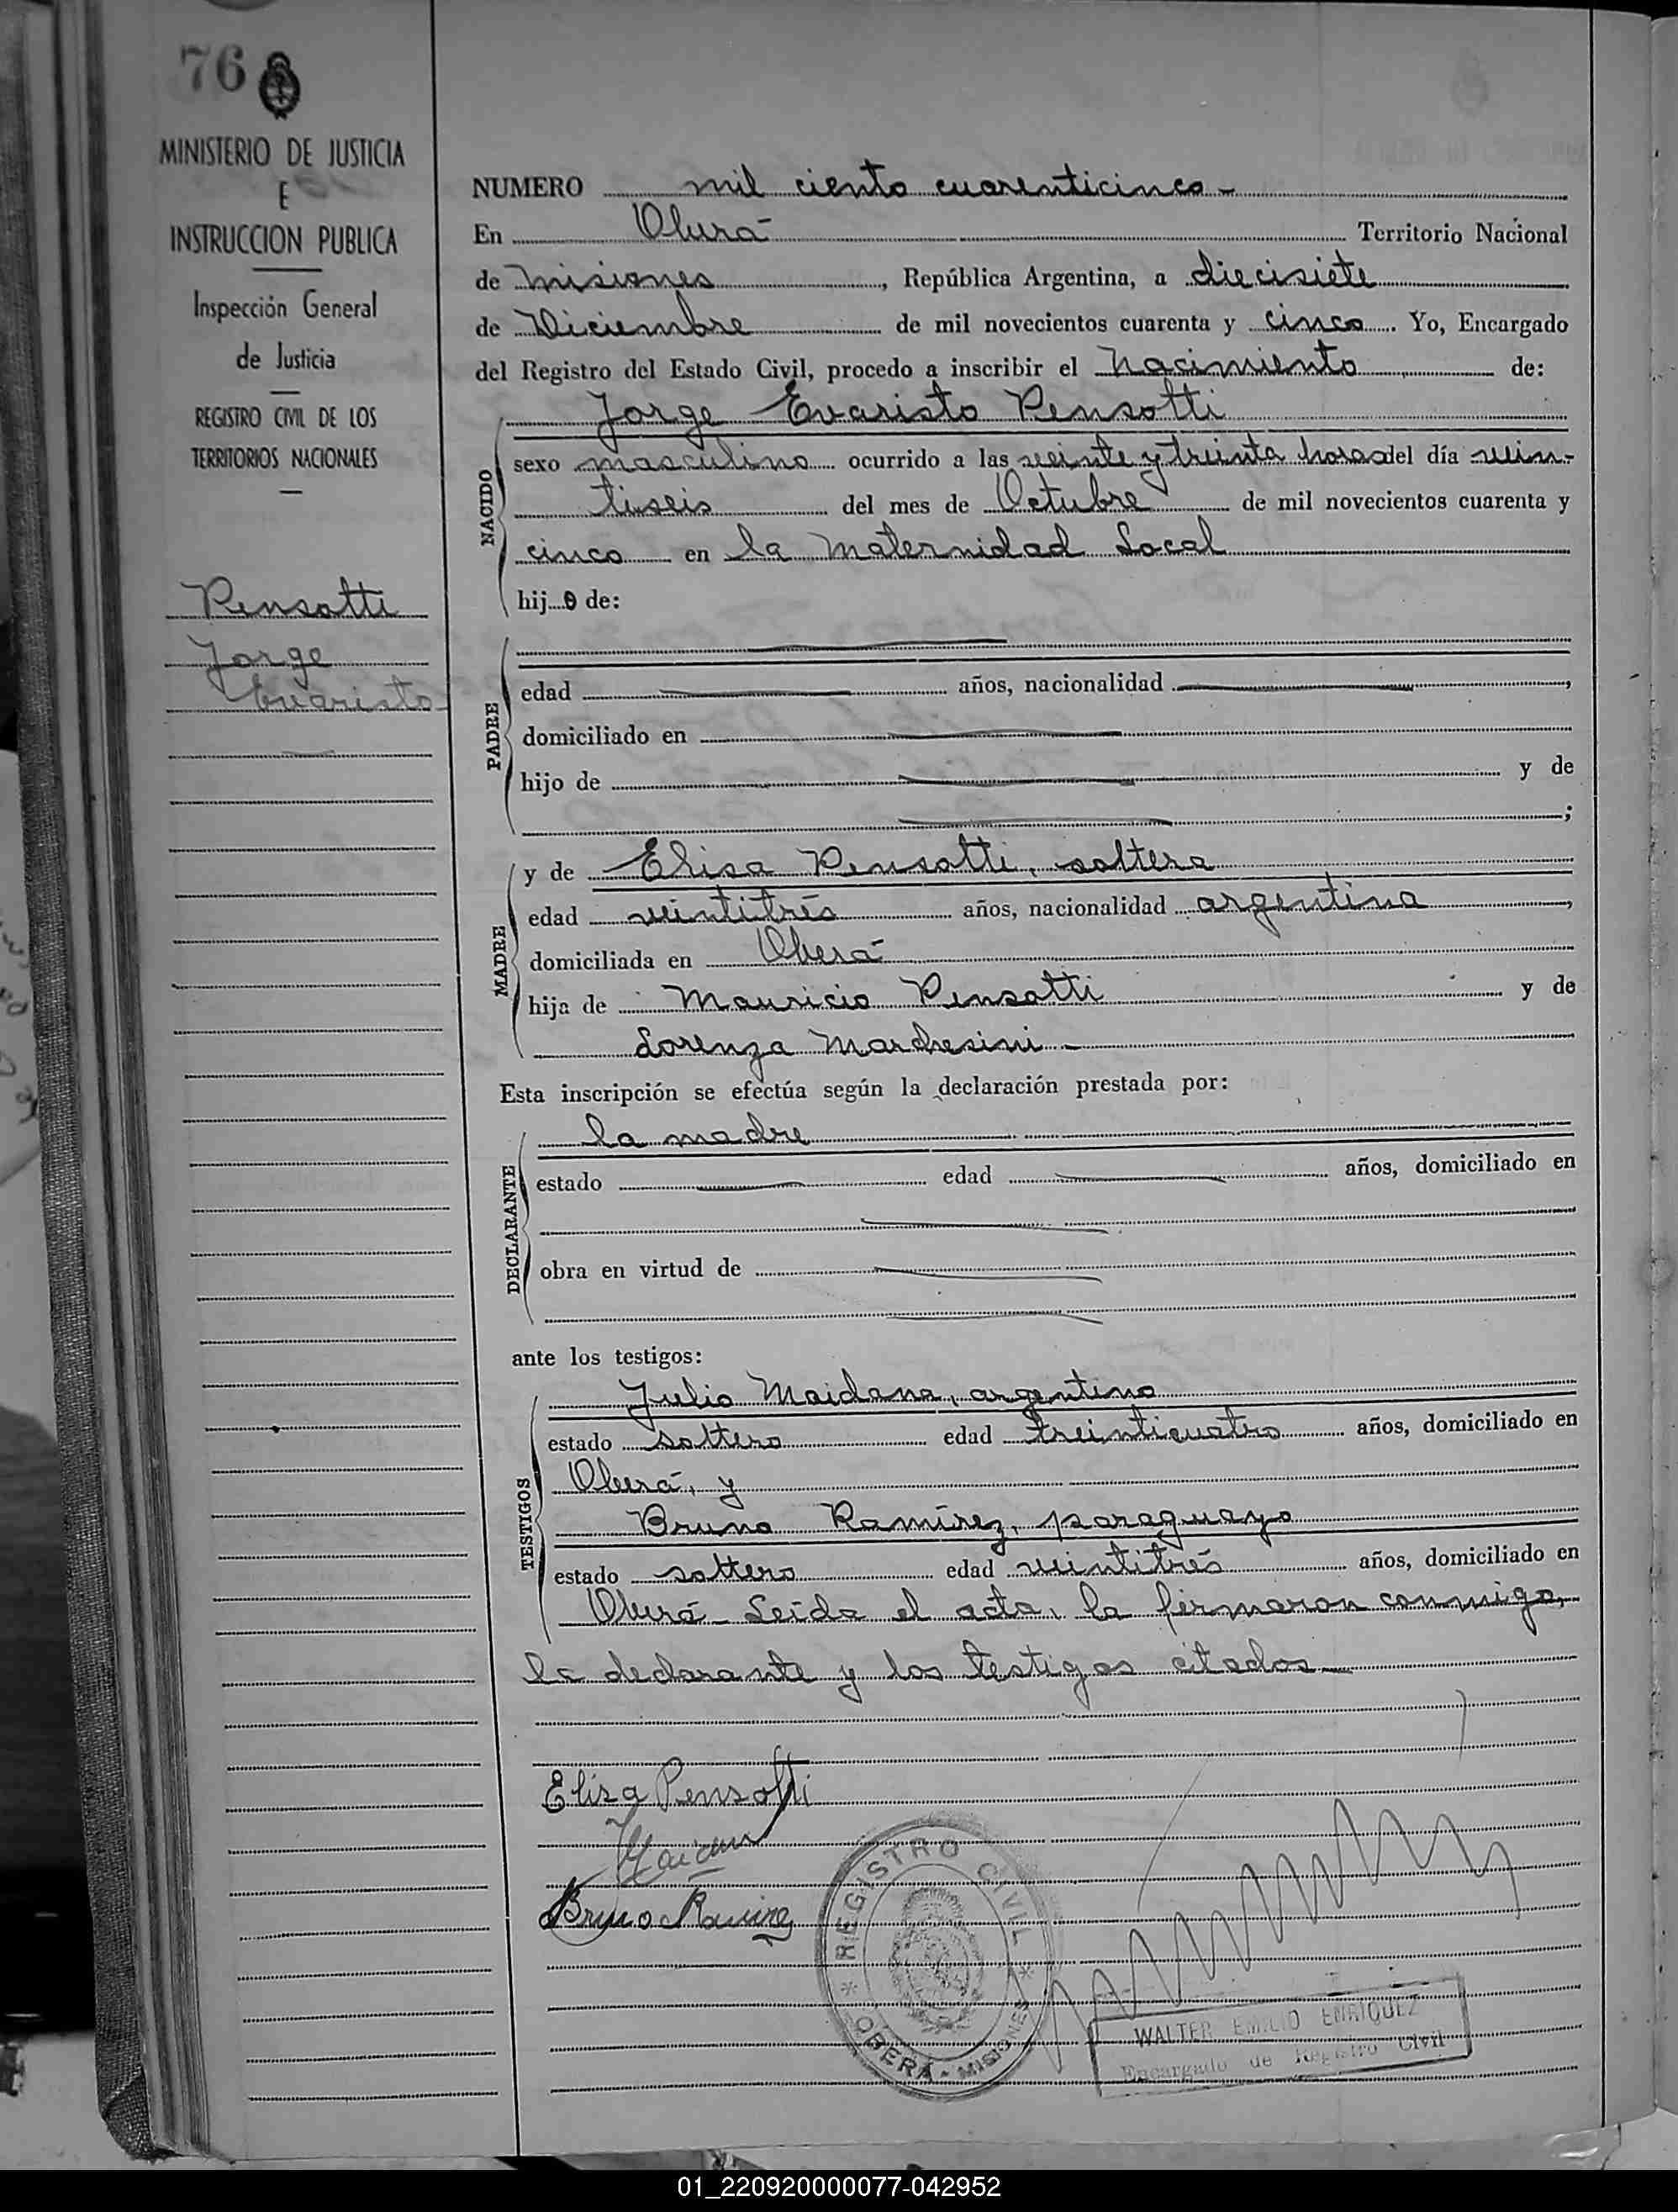 76
MINISTERIO DE JUSTICIA
E
INSTRUCCION PUBLICA
Inspección General
de Justicia
REGISTRO CIVIL DE LOS
TERRITORIOS NACIONALES
Pensotti
Jorge
Evaristo
NUMERO mil ciento cuarenticinco -
En Oberá Territorio Nacional
de Misiones, República Argentina, a diecisiete
de Diciembre de mil novecientos cuarenta y cinco. Yo, Encargado
del Registro del Estado Civil, procedo a inscribir el nacimiento de:
Jorge Evaristo Pensotti
NACIDO
sexo masculino ocurrido a las veinte y treinta horas del día vein-
tiseis del mes de Octubre de mil novecientos cuarenta y
cinco en la Maternidad Local
hijo de:
PADRE
edad años, nacionalidad ,
domiciliado en
hijo de y de
;
MADRE
y de Elisa Pensotti, soltera
edad veintitrés años, nacionalidad argentina,
domiciliada en Oberá
hija de Mauricio Pensotti y de
Lorenza Marchesini -
Esta inscripción se efectúa según la declaración prestada por:
DECLARANTE
la madre
estado edad años, domiciliado en
obra en virtud de
ante los testigos:
TESTIGOS
Julio Maidana, argentino
estado soltero edad treinticuatro años, domiciliado en
Oberá, y
Bruno Ramírez, paraguayo
estado soltero edad veintitrés años, domiciliado en
Oberá - Leída el acta, la firmaron conmigo,
la declarante y los testigos citados -
Elisa Pensotti
Bruno Ramirez
REGISTRO CIVIL
OBERÁ - MISIONES
WALTER EMILIO ENRIQUEZ
Encargado de Registro Civil
01_220920000077-042952